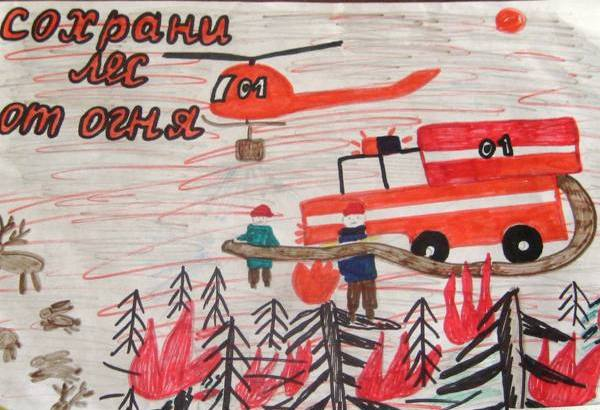 сохрани
лес
от огня
01
01